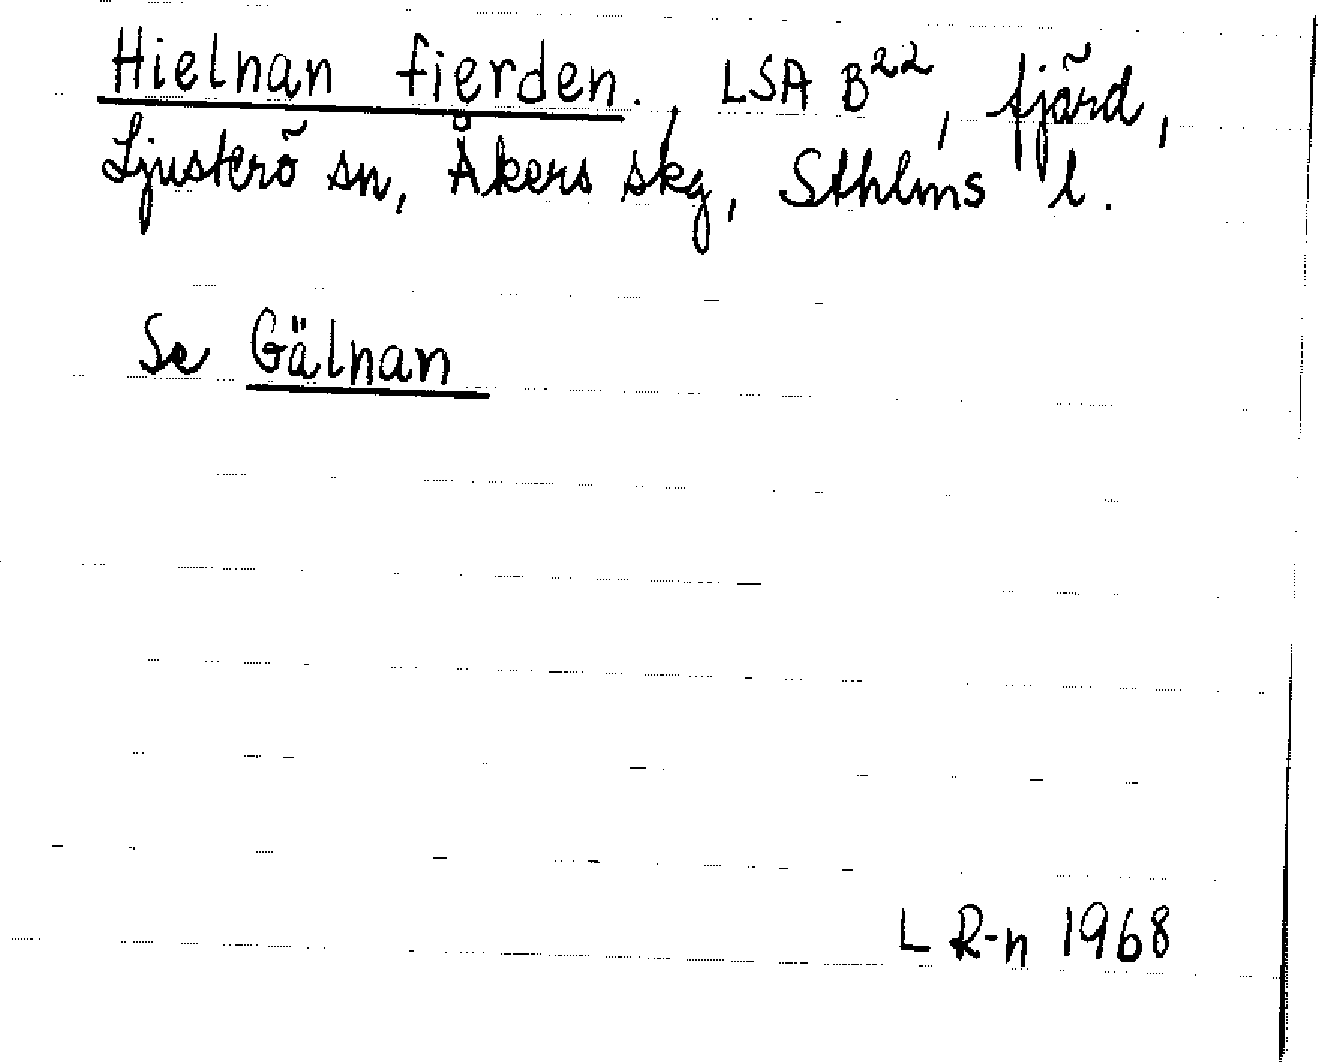 Hielnan fierden., LSA B²², fjärd,
Ljusterö sn, Åkers skg, Sthlms l.
Se Gälnan
L R-n 1968